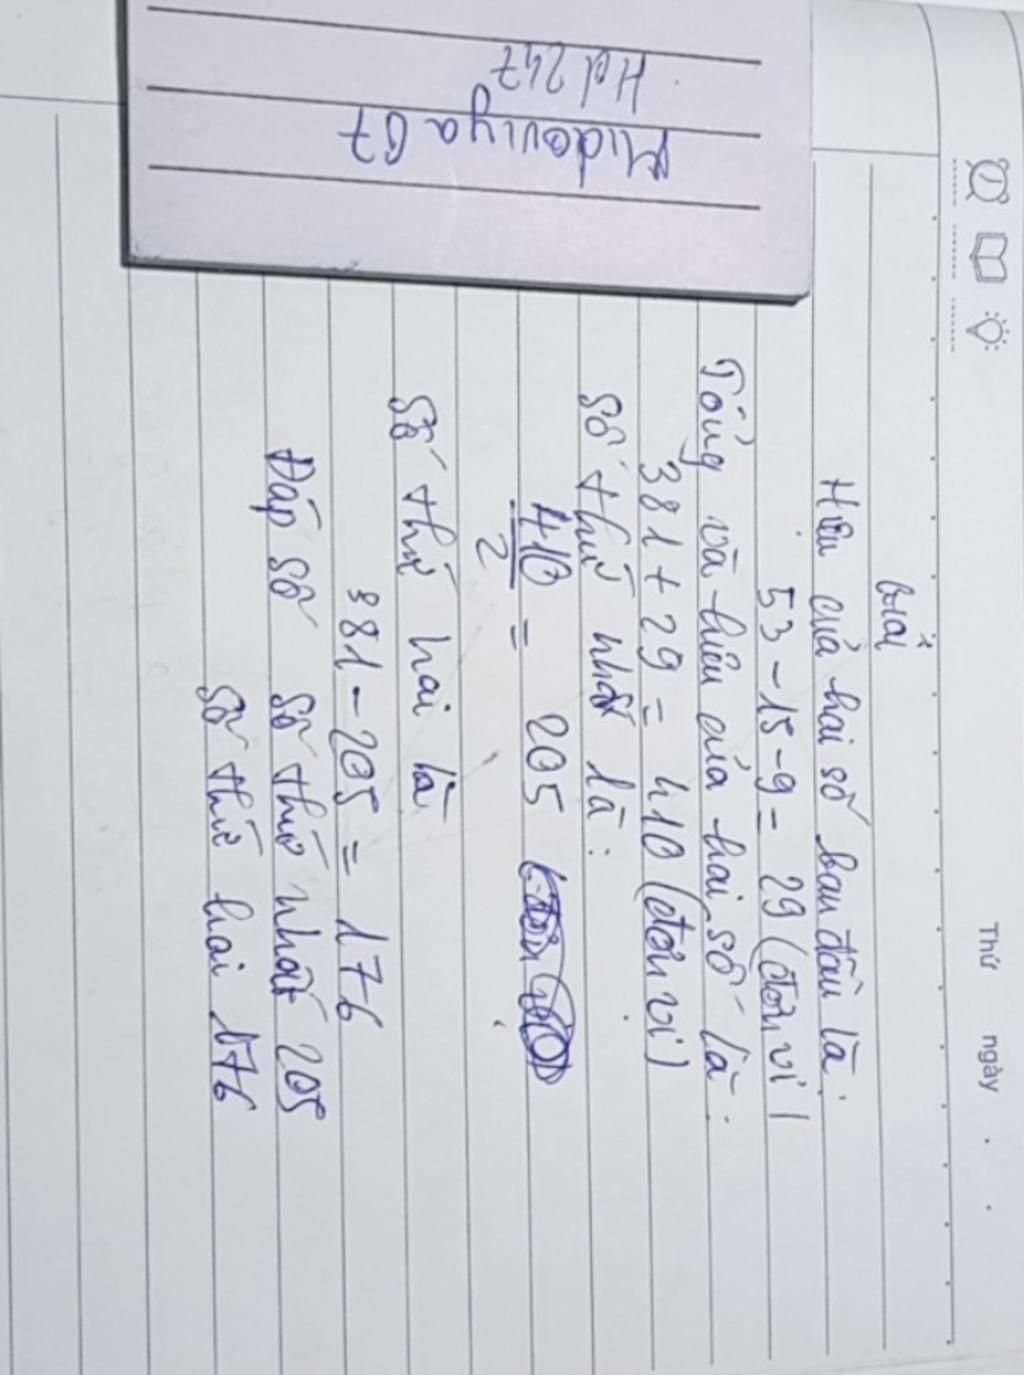 Thứ ngày
Giải
Hiệu của hai số ban đầu là:
53 - 15 - 9 = 29 (đơn vị)
Tổng và hiệu của hai số là:
381 + 29 = 410 (đơn vị)
Số thứ nhất là:
410/2 = 205
Số thứ hai là
381 - 205 = 176
Đáp số số thứ nhất 205
số thứ hai 176
Midoriya 07
Hd 247